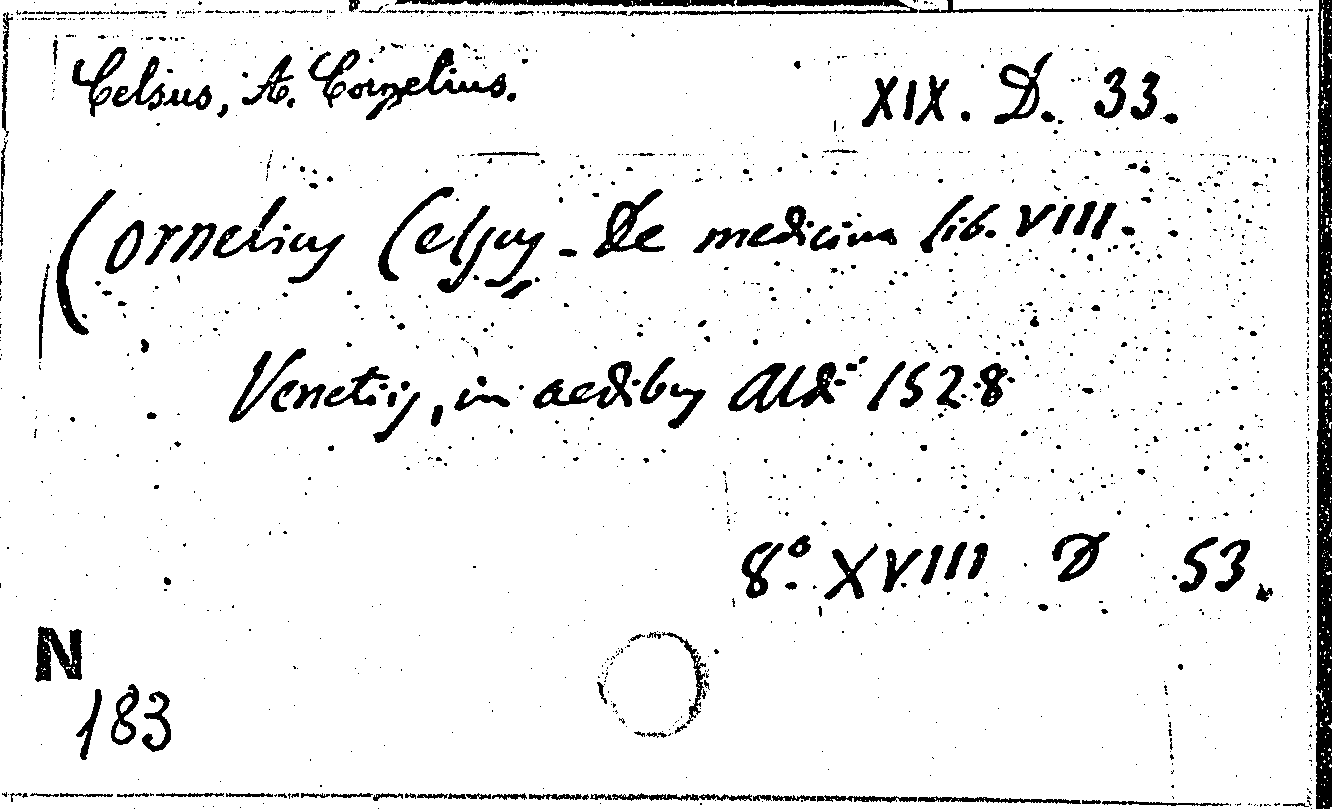 Celsus, A. Cornelius.
XIX. D. 33.
Cornelius Celsus. De medicina lib. VIII.
Venetiis, in aedibus Aldi 1528
8° XVIII D 53.
N
183